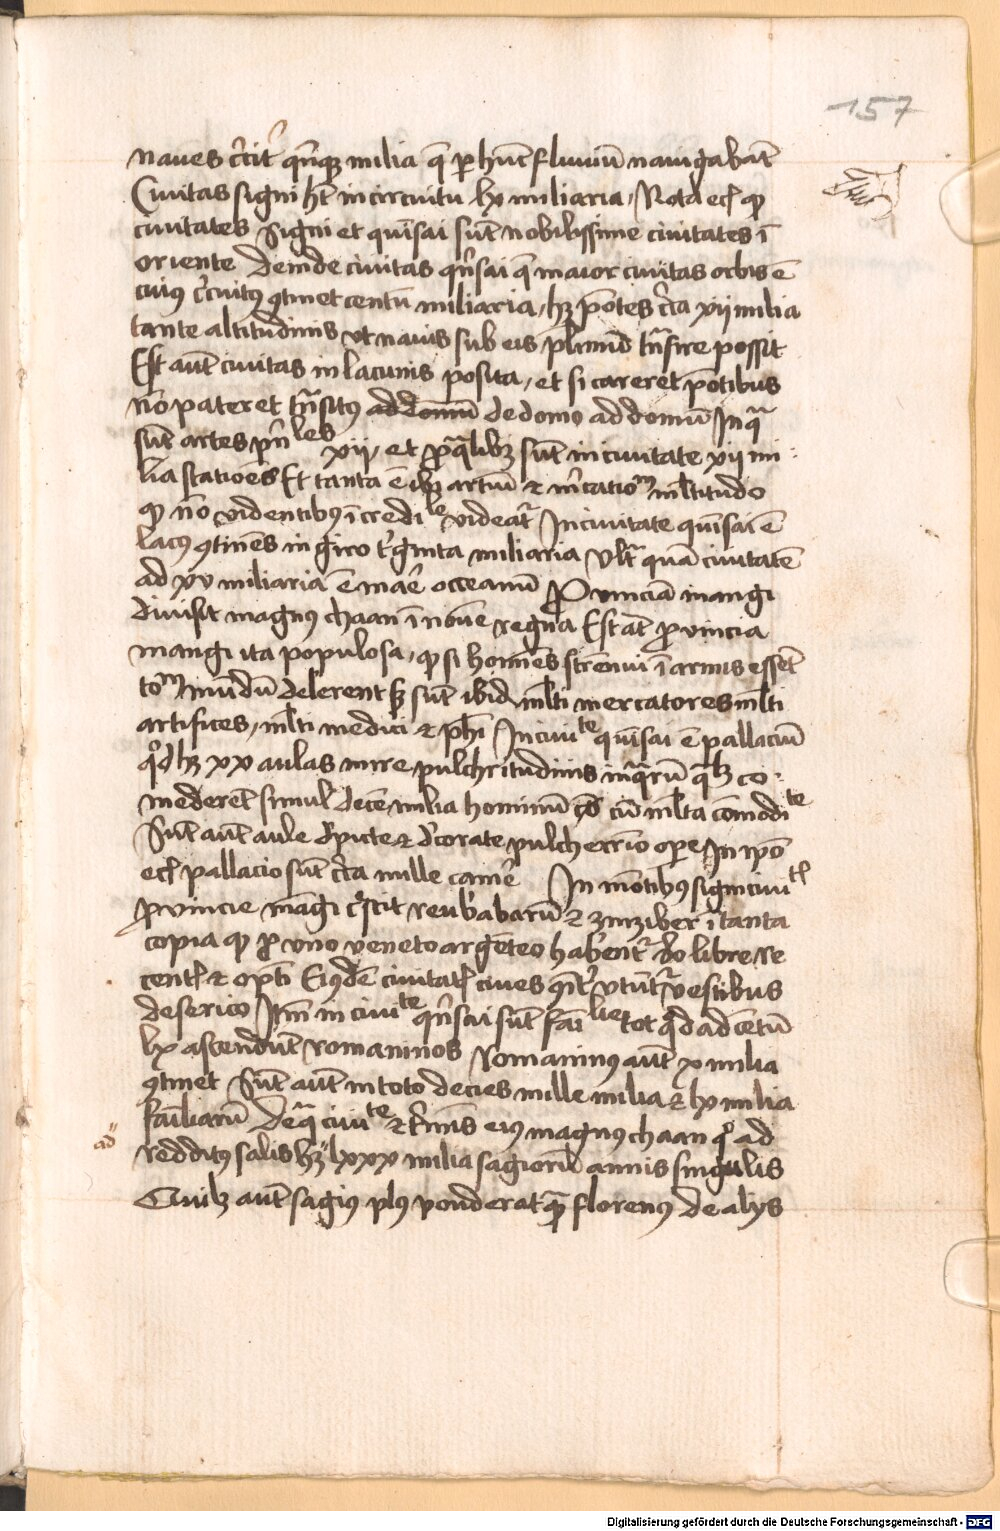 157
naues circiter quinque milia que per hunc fluuium nauigabant
Ciuitas signi habet in circuitu lx miliaria, Nota eciam quod
ciuitates Signi et quinsai sunt nobilissime ciuitates in
oriente Deinde ciuitas quinsai que maior ciuitas orbis est
cuius circuitus continet centum miliaria, habet pontes circa xii milia
tante altitudinis vt nauis sub eis plurimum transire possit
Est autem ciuitas in lacunis posita, et si careret pontibus
non pateret transitus ad domum de domo ad domum In qua
sunt artes principales xii, et pro qualibet sunt in ciuitate xii mi
lia stationes Et tanta est ibi artium et mercationum multitudo
quod non videntibus incredibile videatur In ciuitate quinsai est
lacus continens in giro triginta miliaria Vltra quam ciuitatem
ad xv miliaria est mare occeanum Prouinciam mangi
diuisit magnus chaan in nouem regna Est autem prouincia
mangi ita populosa, quod si homines strenui in armis essent
totum mundum delerent sed sunt ibidem multi mercatores multi
artifices, multi medici et philosophi In ciuitate quinsai est pallacium
quod habet xx aulas mire pulchritudinis in quarum qualibet co
mederent simul decem milia hominum cum multa commoditate
Sunt autem aule depicte et decorate pulcherrimo opere In ipso
eciam pallacio sunt circa mille camere In montibus signi ciuitatis
prouincie mangi crescit reubabarum et zinziber in tanta
copia quod pro vno veneto argenteo habentur libre re
centis et optimi Eiusdem ciuitatis ciues communiter vtuntur vestibus
de serico Item in ciuitate quinsai sunt familie tot quod ad centum
lx ascendunt romaninos Romaninus autem x milia
continet Sunt autem in toto decies mille milia et lx milia
familiarum De qua ciuitate et terminis eius magnus chaan quo ad
ad
redditus salis habet lxxx milia sagiorum annis singulis
Quilibet autem sagius plus ponderat quam florenus de aliis
Digitalisierung gefördert durch die Deutsche Forschungsgemeinschaft - DFG